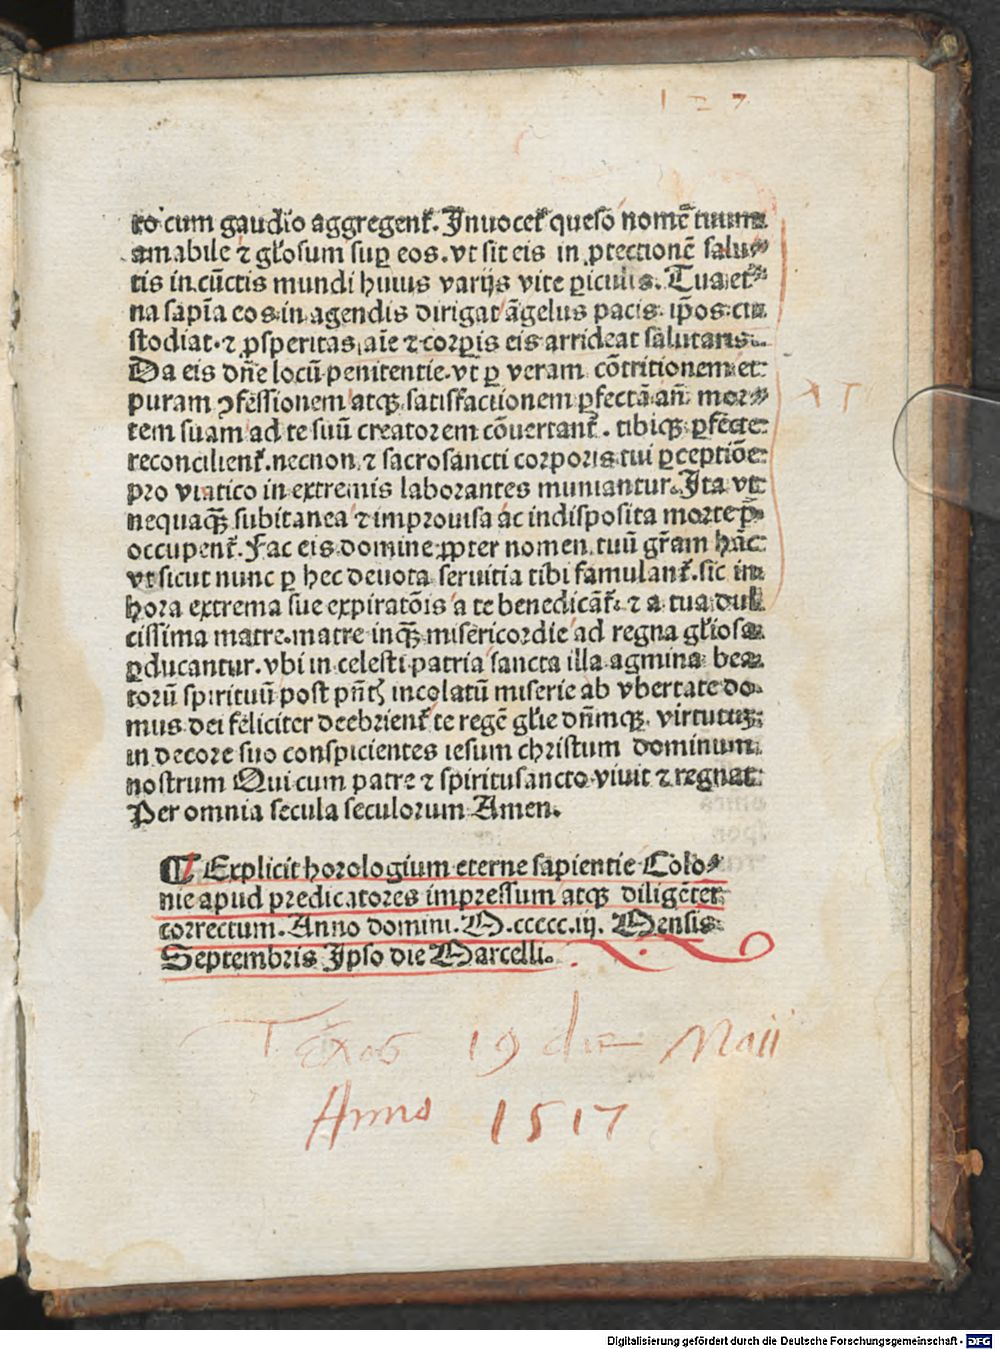 127
to cum gaudio aggregent᷑. Inuocet᷑ queso nomē tuum
amabile ⁊ gl'osum suꝑ eos. vt sit eis in ꝓtectionē salu⸗
tis in cūctis mundi huius varijs vite ꝑiculis. Tua et'⸗
na sapīa eos in agendis dirigat āgelus pacis ip̄os cu
stodiat. ⁊ ꝓsperitas aīe ⁊ corꝑis eis arrideat salutaris.
Da eis dn̄e locū penitentie. vt ꝑ veram cōtritionem et
puram ꝯfessionem atqꝫ satisfactionem ꝑfectā an̄ mor⸗
tem suam ad te suū creatorem cōuertant᷑. tibiqꝫ ꝑfecte
reconcilient᷑. necnon ⁊ sacrosancti corporis tui ꝑceptiōe
pro viatico in extremis laborantes muniantur. Ita vt
nequaqꝫ̄ subitanea ⁊ improuisa ac indisposita morte p̄
occupent᷑. Fac eis domine ꝓpter nomen tuū gr̄am hāc
vt sicut nunc ꝑ hec deuota seruitia tibi famulant᷑. sic in
hora extrema sue expiratōis a te benedicāt᷑ ⁊ a tua dul
cissima matre. matre inqꝫ̄ misericordie ad regna gl'iosa
ꝑducantur. vbi in celesti patria sancta illa agmina bea
torū spirituū post pn̄tꝭ incolatū miserie ab vbertate do
mus dei feliciter deebrient᷑ te regē gl'ie dn̄mqꝫ virtutuꝫ
in decore suo conspicientes iesum christum dominum
nostrum Qui cum patre ⁊ spiritusancto viuit ⁊ regnat
Per omnia secula seculorum Amen.
¶ Explicit horologium eterne sapientie Colo⸗
nie apud predicatores impressum atqꝫ diligēter
correctum. Anno domini. M.ccccc.iij. Mensis
Septembris Ipso die Marcelli.
19 die Maii
Anno 1517
Digitalisierung gefördert durch die Deutsche Forschungsgemeinschaft - DFG